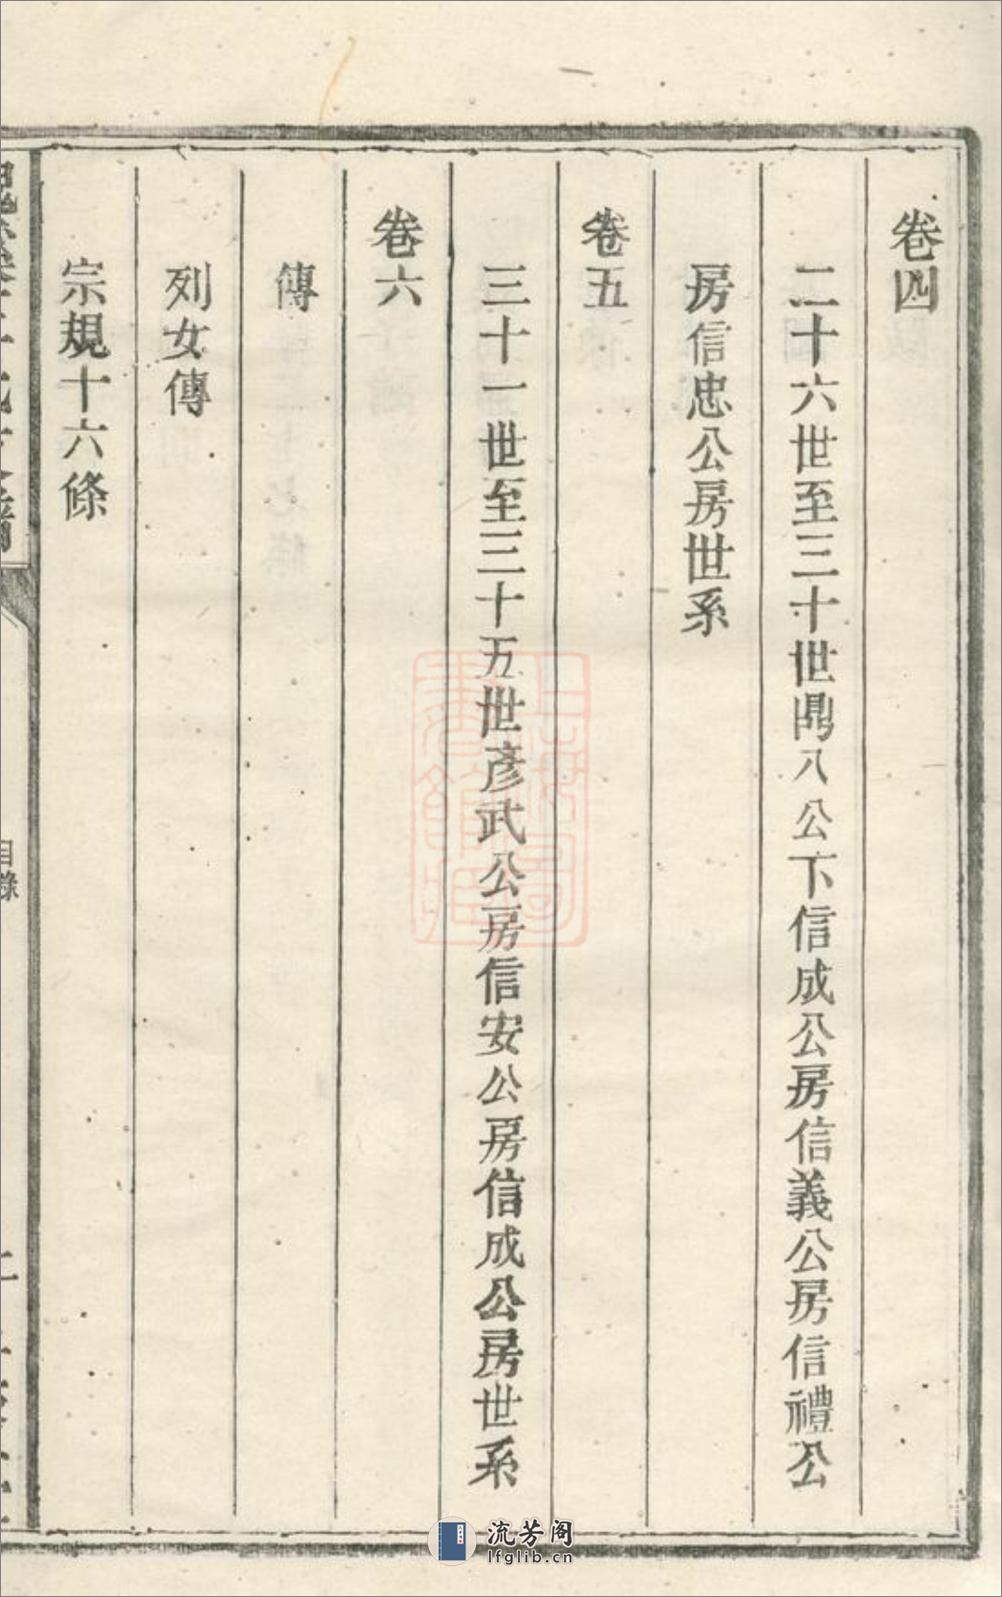 卷四
二十六世至三十世鼎八公下信成公房信義公房信禮公
房信忠公房世系
卷五
三十一世至三十五世彥武公房信安公房信成公房世系
卷六
傳
列女傳
宗規十六條
目錄
上海圖書館藏
流芳阁
lfglib.cn